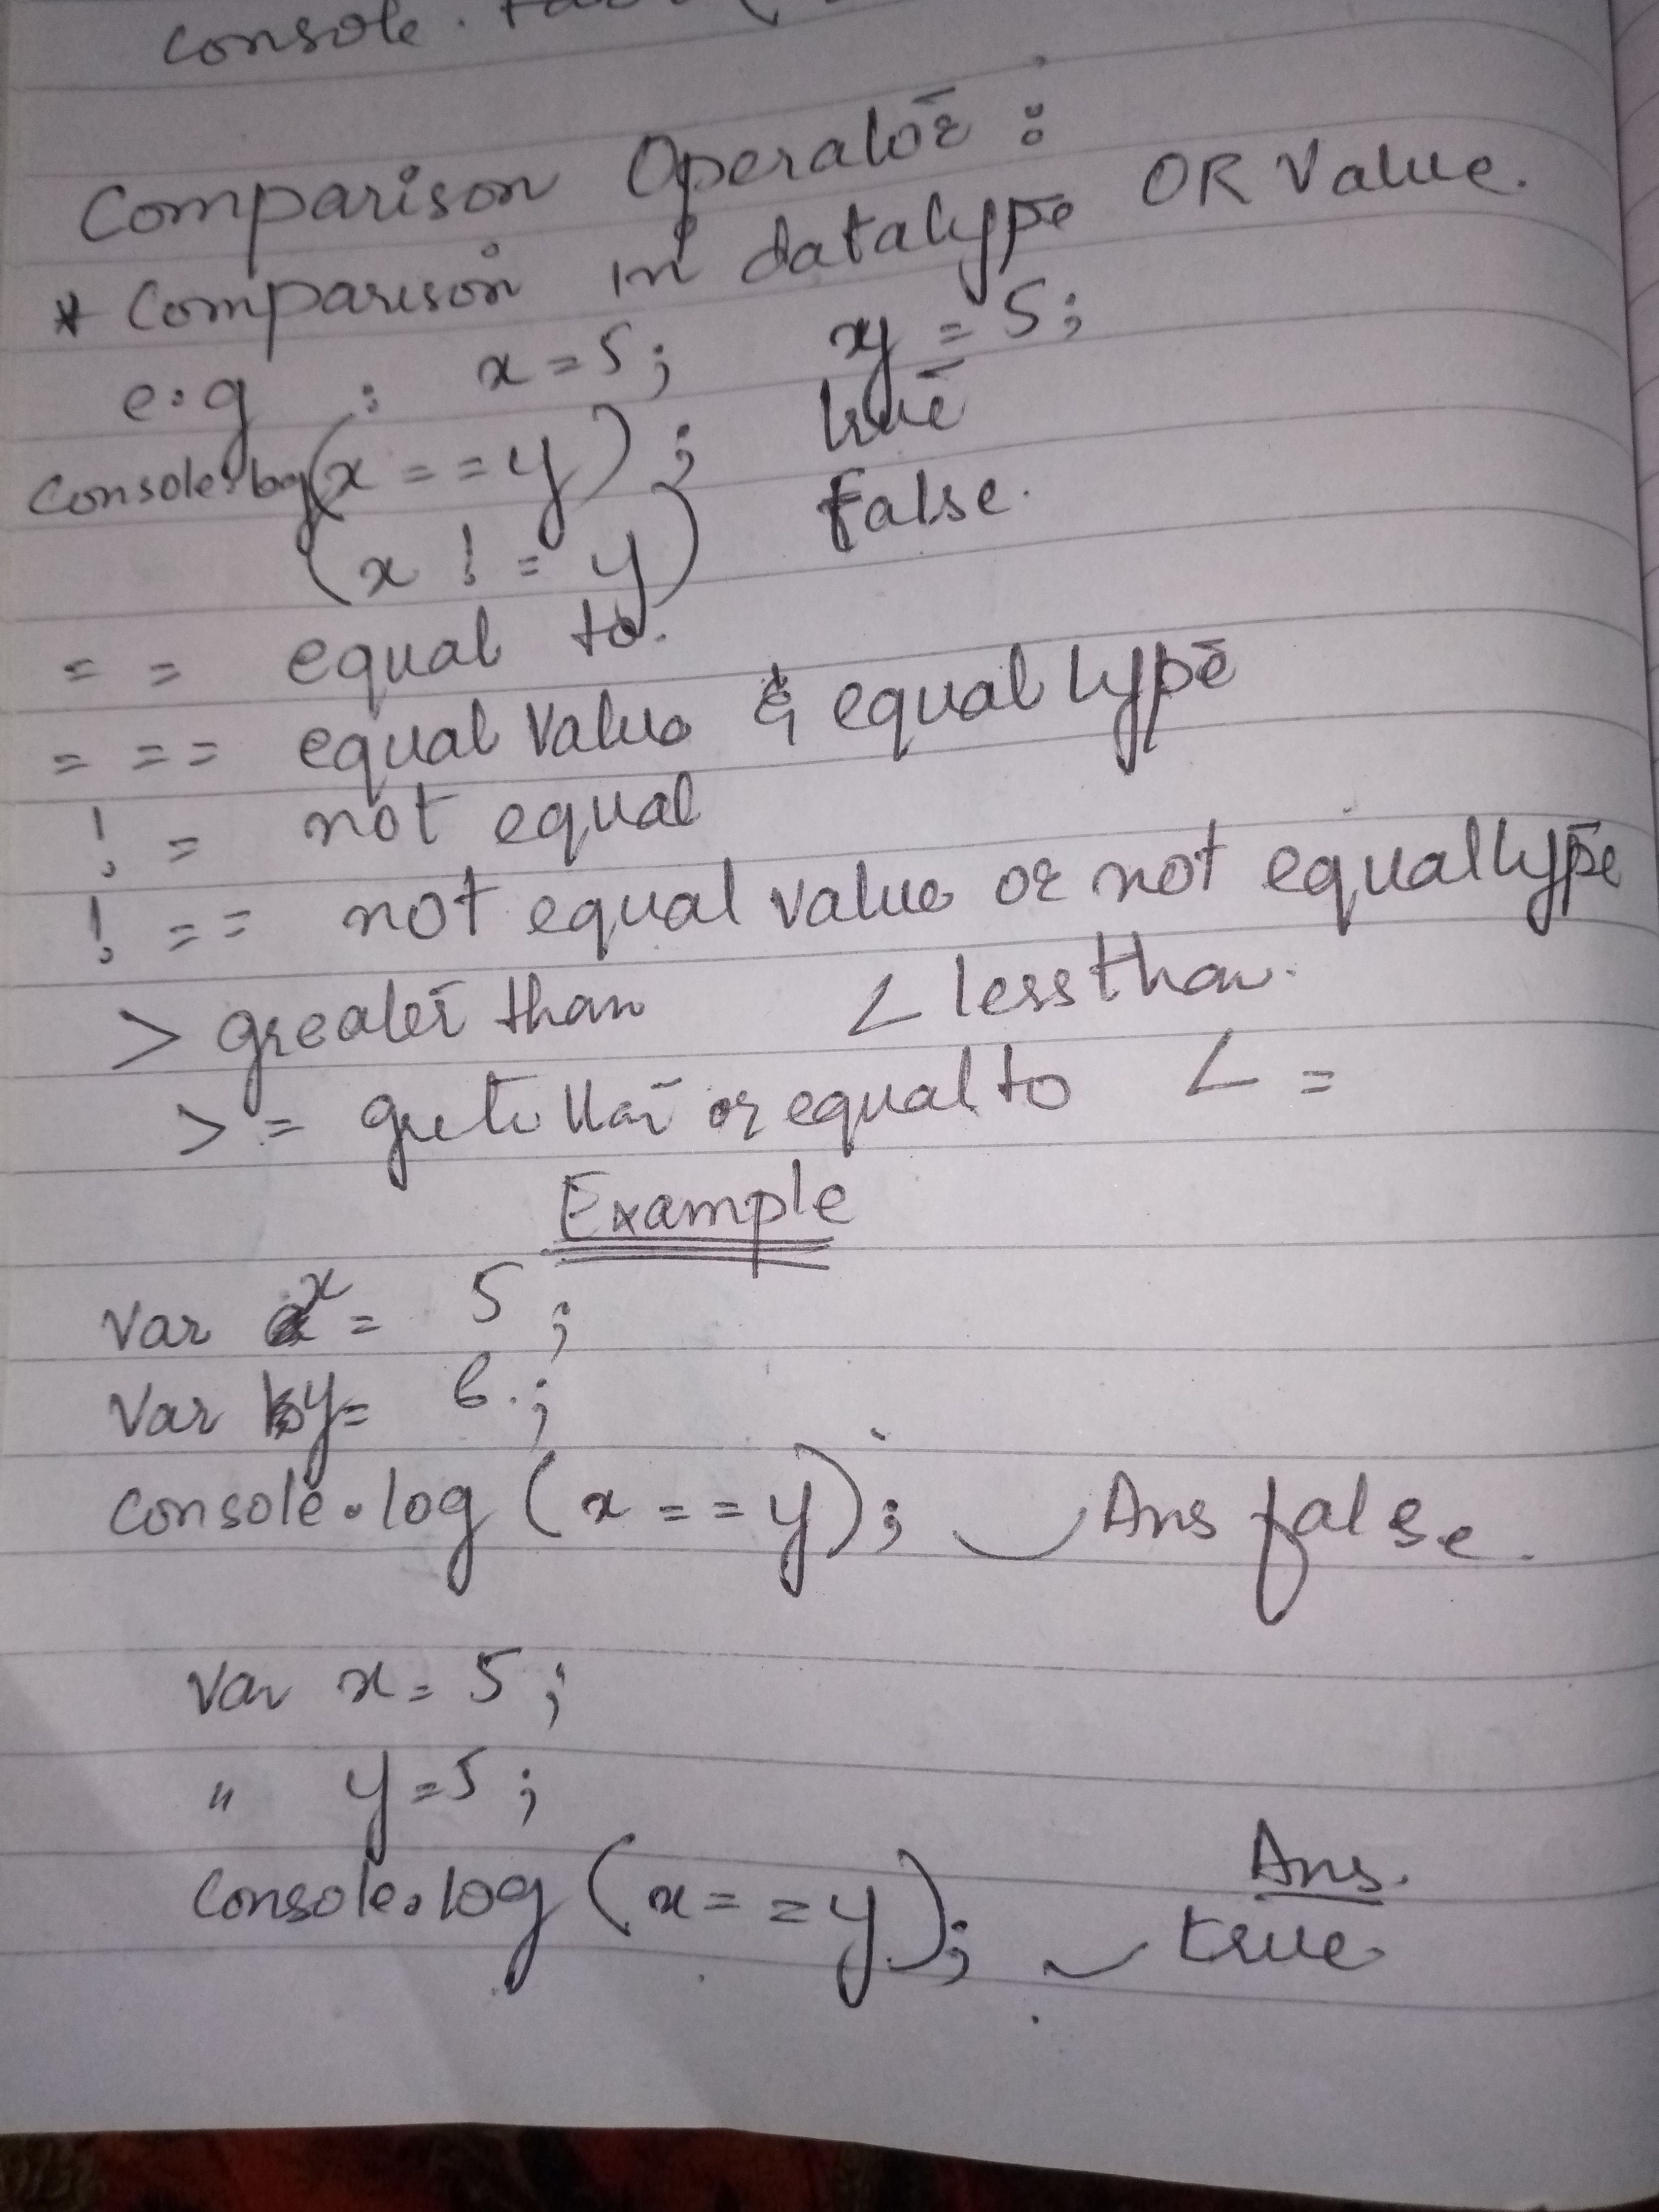 Console.
Comparison Operator :
* Comparison in datatype OR Value.
e.g : x = 5; y = 5;
Console.log(x == y); true
(x != y) False.
== equal to.
=== equal Value & equal type
!= not equal
!== not equal value or not equal type
> greater than < less than.
>= or equal to <=
Example
Var x = 5;
Var y = 6.;
Console.log (x == y); Ans false.
Var x = 5;
" y = 5;
Console.log (x == y); Ans.
true